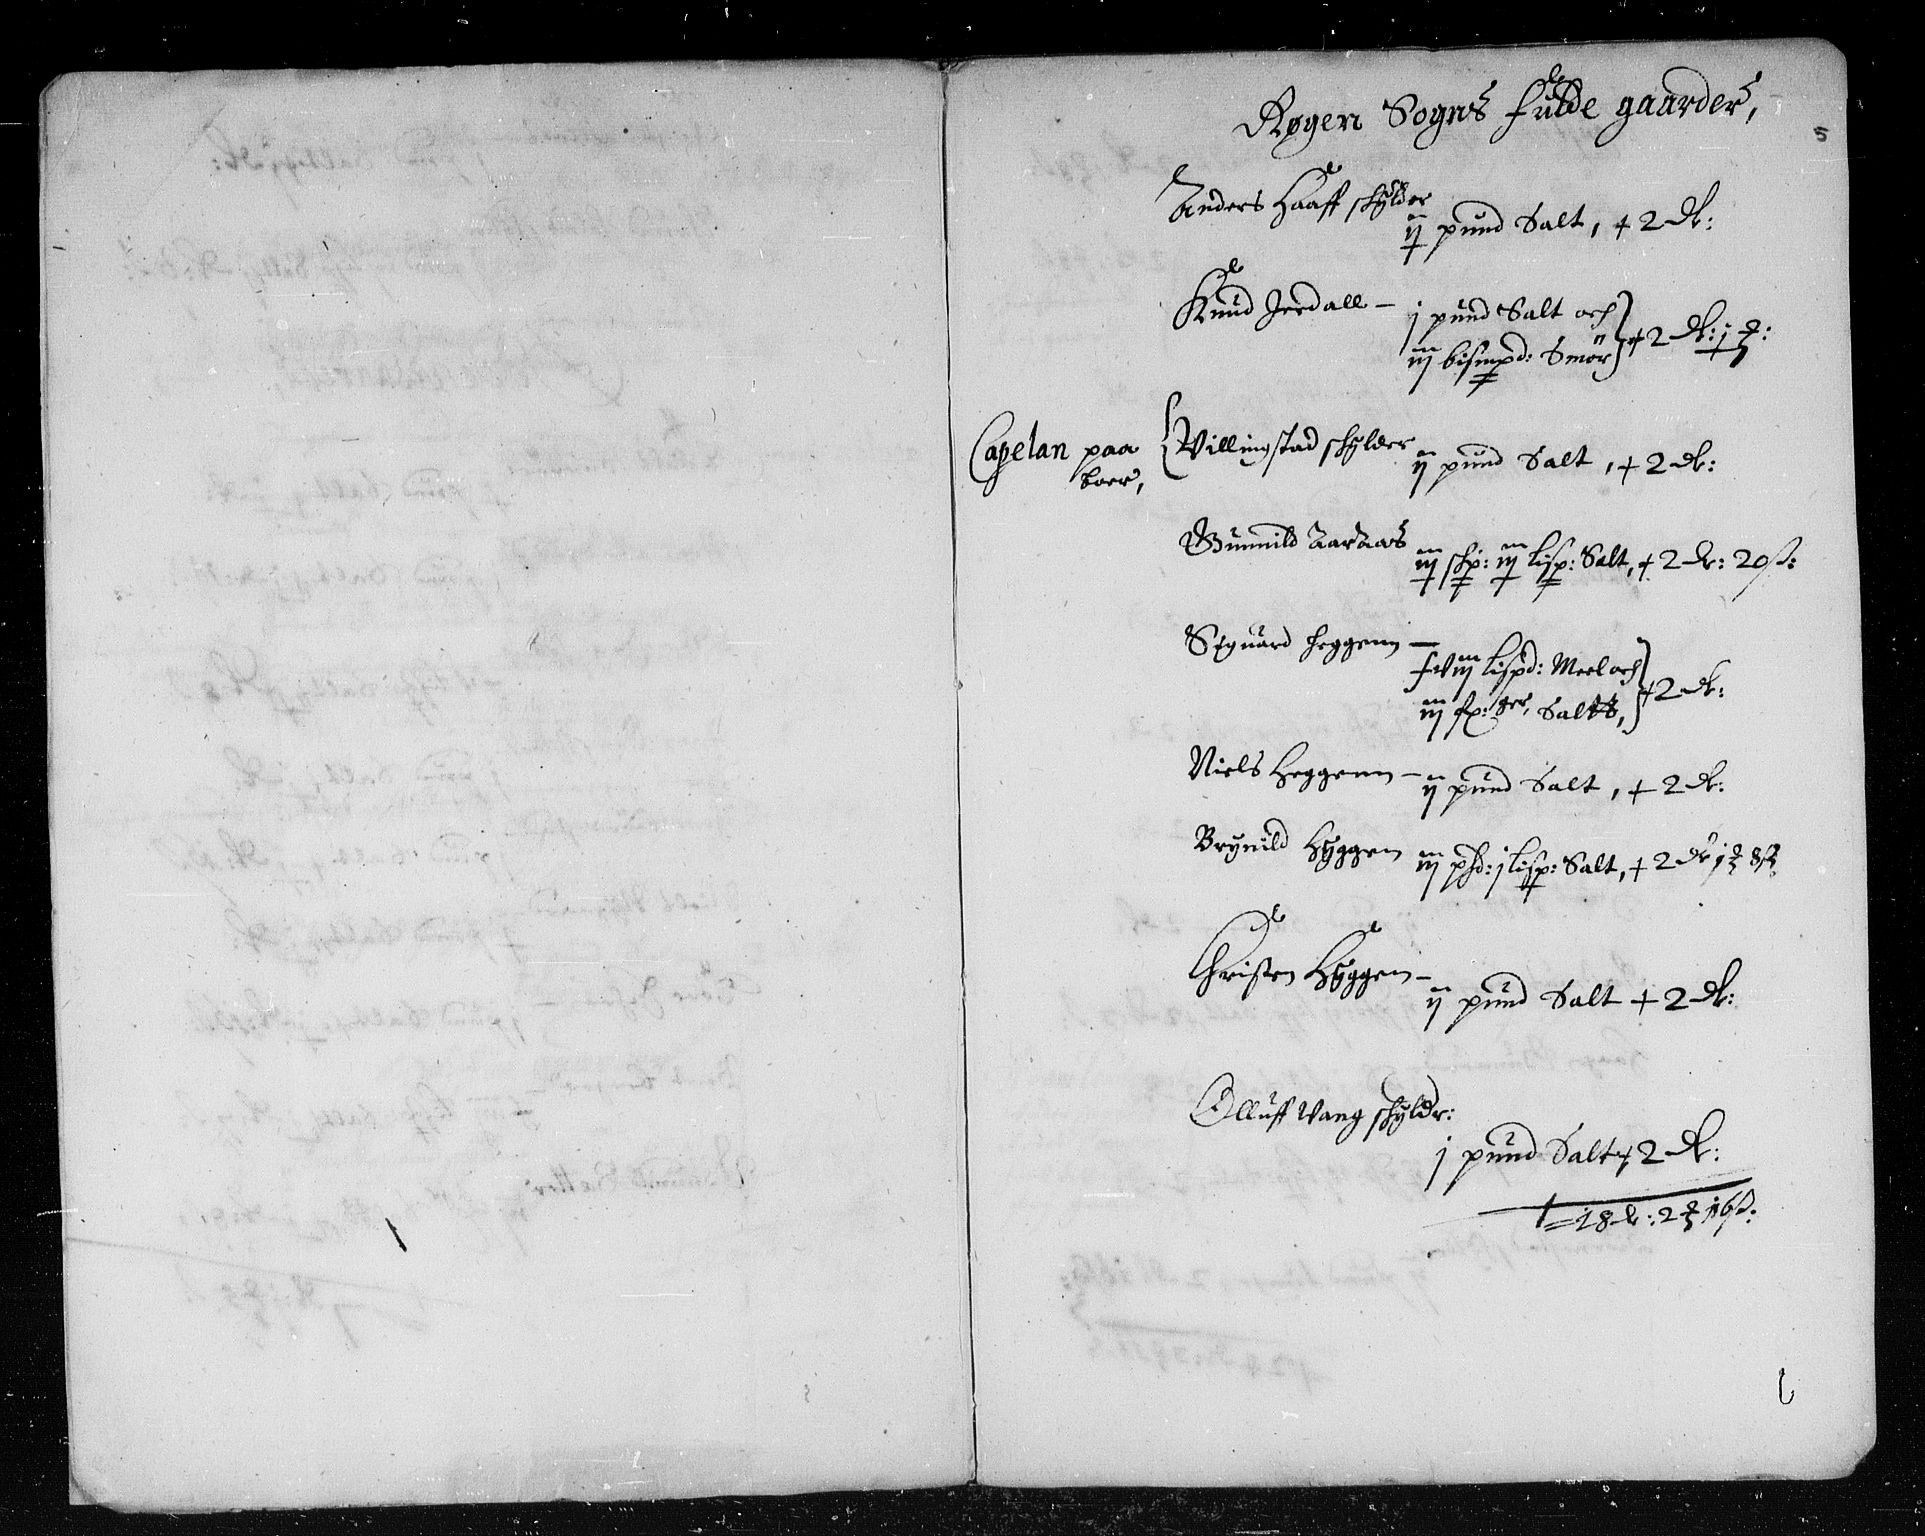 Røgen Sogns fulde gaarder,
5
Anders Haaff schylder
ij pund Salt, + 2 dr:
Knud Jerdall - j pund Salt och
iij bismpd: Smör + 2 dr: 1
Capelan paa Villingstad schylder ij pund Salt, + 2 dr:
boer,
Gunnild Aaraas iij schp: iij lisp: Salt, + 2 dr: 20 s:
Siguard Heggenn -
lispd: Meel och
iij Salts, + 2 dr:
Niels Heggenn - ij pund Salt, + 2 dr:
Brynild Hyggen iij phd: j lisp: Salt, + 2 dr 1 8 s
Christen Hyggen -
ij pund Salt + 2 dr:
Olluff Vang schyldr:
j pund Salt + 2 dr:
18 dr: 2 16 s: